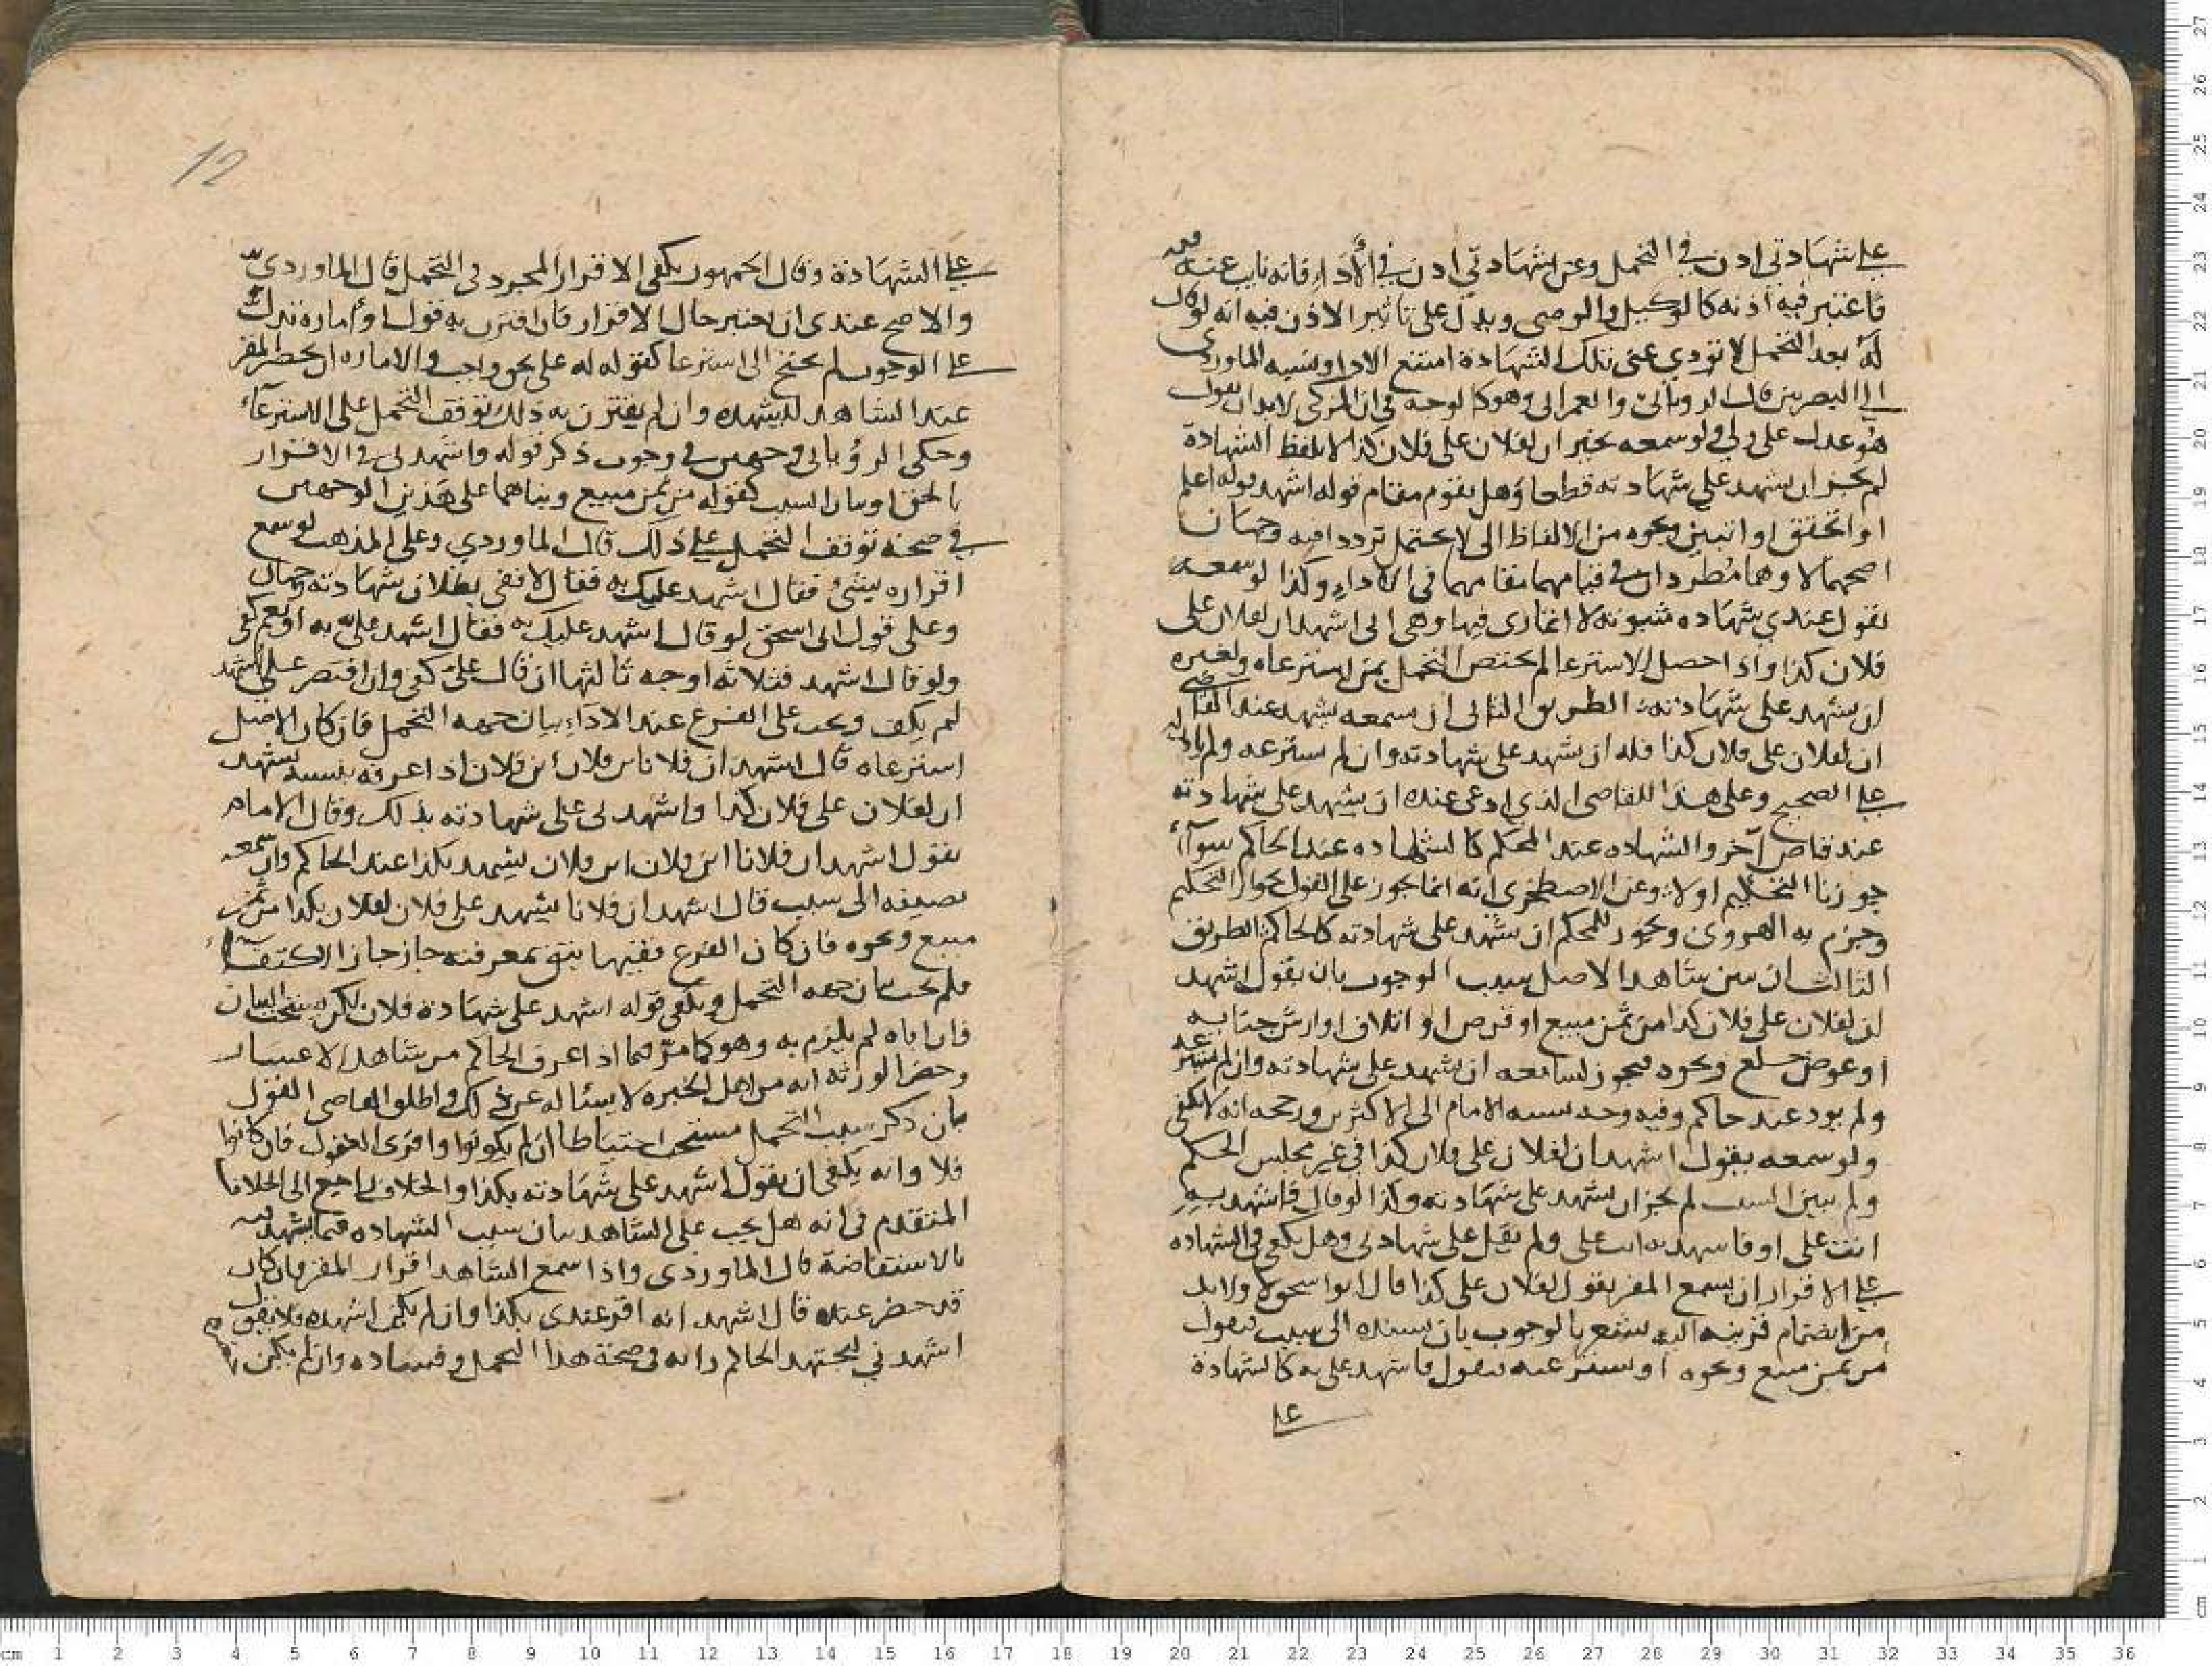 على شهادتي اذن في التحمل وعن شهادتي اذن في الأداء فانه نايب عنه
فاعتبر فيه اذنه كالوكيل والوصي ويدل على تاثير الاذن فيه انه لو قال
له بعد التحمل لا تؤدي عني تلك الشهادة امتنع الادا ونسبه الماوردي
الى البصريين قال الروياني والعمراني وهو كالوجه في ان المزكي لابد ان يقول
هو عدل علي ولي ولو سمعه يخبر ان لفلان على فلان كذا لا بلفظ الشهادة
لم يجز ان يشهد على شهادته قطعا وهل يقوم مقام قوله اشهد قوله اعلم
او اتحقق او اتيقن ونحوه من الالفاظ التي لا تحتمل ترددا فيه وجهان
اصحهما لا وهما مطردان في قيامهما مقامهما في الاداء وكذا لو سمعه
يقول عندي شهادة مبتوتة لا اتمارى فيها وهي اني اشهد ان لفلان على
فلان كذا واذا حصل الاسترعا لم يختص التحمل بمن استرعاه ولغيره
ان يشهد على شهادته الطريق الثاني ان يسمعه يشهد عند القاضي
ان لفلان على فلان كذا فله ان يشهد على شهادته وان لم يسترعه ولم ياذن له
على الصحيح وعلى هذا للقاضي الذي ادعى عنده ان يشهد على شهادته
عند قاض آخر والشهادة عند المحكم كالشهادة عند الحاكم سوآء
جوزنا التحكيم او لا وعن الاصطخري انه انما يجوز على القول بجواز التحكيم
وجزم به الهروي ويجوز للمحكم ان يشهد على شهادته كالحاكم الطريق
الثالث ان يبين شاهد الاصل سبب الوجوب بان يقول اشهد
ان لفلان على فلان كذا من ثمن مبيع او قرض او اتلاف او ارش جنايه
او عوض خلع ونحوه فيجوز لسامعه ان يشهد على شهادته وان لم يسترعه
ولم يود عند حاكم وفيه وجه نسبه الامام الى الاكثرين ورجحه انه لا يكفي
ولو سمعه يقول اشهد ان لفلان على فلان كذا في غير مجلس الحكم
ولم يبين السبب لم يجز ان يشهد على شهادته وكذا لو قال فاشهد به
انت علي او فاشهد به انت علي ولم يقل على شهادتي وهل يكفي في الشهاده
على الاقرار ان يسمع المقر يقول لفلان على كذا قال ابو اسحق لا ولابد
من انضمام قرينه اليه تشعر بالوجوب بان يسنده الى سبب فيقول
من ثمن مبيع ونحوه او يسترعيه فيقول فاشهد علي به كالشهادة
على
12
على الشهادة وقال الجمهور يكفي الاقرار المجرد في التحمل قال الماوردي
والاصح عندي ان يعتبر حال الاقرار فان اقترن به قول او أمارة تدل
على الوجوب لم يحتج الى استرعا كقوله له علي بحق واجب والاماره ان يحضر المقر
عند الشاهد ليشهده وان لم يقترن به ذلك توقف التحمل على الاسترعآء
وحكى الروياني وجهين في وجوب ذكر قوله واشهد لي في الاقرار
بالحق او بيان السبب كقوله من ثمن مبيع وبناهما على هذين الوجهين
في صحة توقف التحمل على ذلك قال الماوردي وعلى المذهب لو سمع
اقراره بشيء فقال اشهد عليك به فقال لا ففي بطلان شهادته وجهان
وعلى قول ابي اسحق لو قال اشهد عليك به فقال اشهد علي به او نعم كفى
ولو قال اشهد فثلاثة اوجه ثالثها ان قال علي كفى وان اقتصر على اشهد
لم يكف ويجب على الفرع عند الاداء بيان جهه التحمل فان كان الاصل
استرعاه قال اشهد ان فلانا بن فلان بن فلان اذا عرفه بنسبه يشهد
ان لفلان على فلان كذا واشهدني على شهادته بذلك وقال الامام
يقول اشهد ان فلانا ابن فلان ابن فلان يشهد بكذا عند الحاكم وان سمعه
يضيفه الى سبب قال اشهد ان فلانا يشهد على فلان لفلان بكذا من ثمن
مبيع ونحوه فان كان الفرع فقيها يثق بمعرفته جاز الاكتفاء
فلم يجب بيان جهه التحمل ويكفي قوله اشهد على شهادة فلان لكن يستحب البيان
فان اباه لم يلزم به وهو كما مر فيما اذا عرف الحاكم من شاهد الاعسار
وحضر الورثة انه من اهل الخبره لا يسئاله عن ذلك واطلق القاضي القول
بان ذكر سبب التحمل مستحب احتياطا ان لم يكونوا وافري العقول فان كانوا
فلا وانه يكفي ان يقول اشهد على شهادته بكذا والخلاف راجع الى الخلاف
المتقدم في انه هل يجب على الشاهد بيان سبب الشهاده فيما يشهد به
بالاستفاضة قال الماوردي واذا سمع الشاهد اقرار المقر فان كان
قد حضر عنده قال اشهد انه اقر عندي بكذا وان لم يكن اشهده فلا يقول
اشهدني ليجتهد الحاكم رايه في صحة هذا التحمل وفساده وان لم يكن